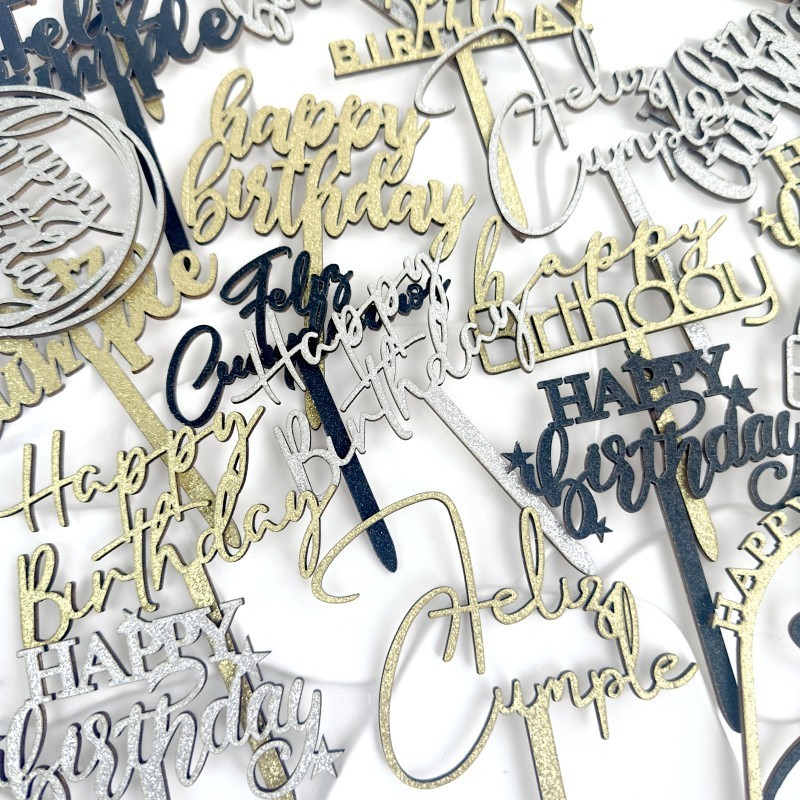 Feliz
Cumple
BIRTHDAY
happy
birthday
Feliz
Cumple
Feliz
happy
birthday
Feliz
Cumpleaños
Happy
Birthday
happy
Birthday
HAPPY
birthday
Happy
Birthday
Feliz
Cumple
HAPPY
birthday
HAPPY